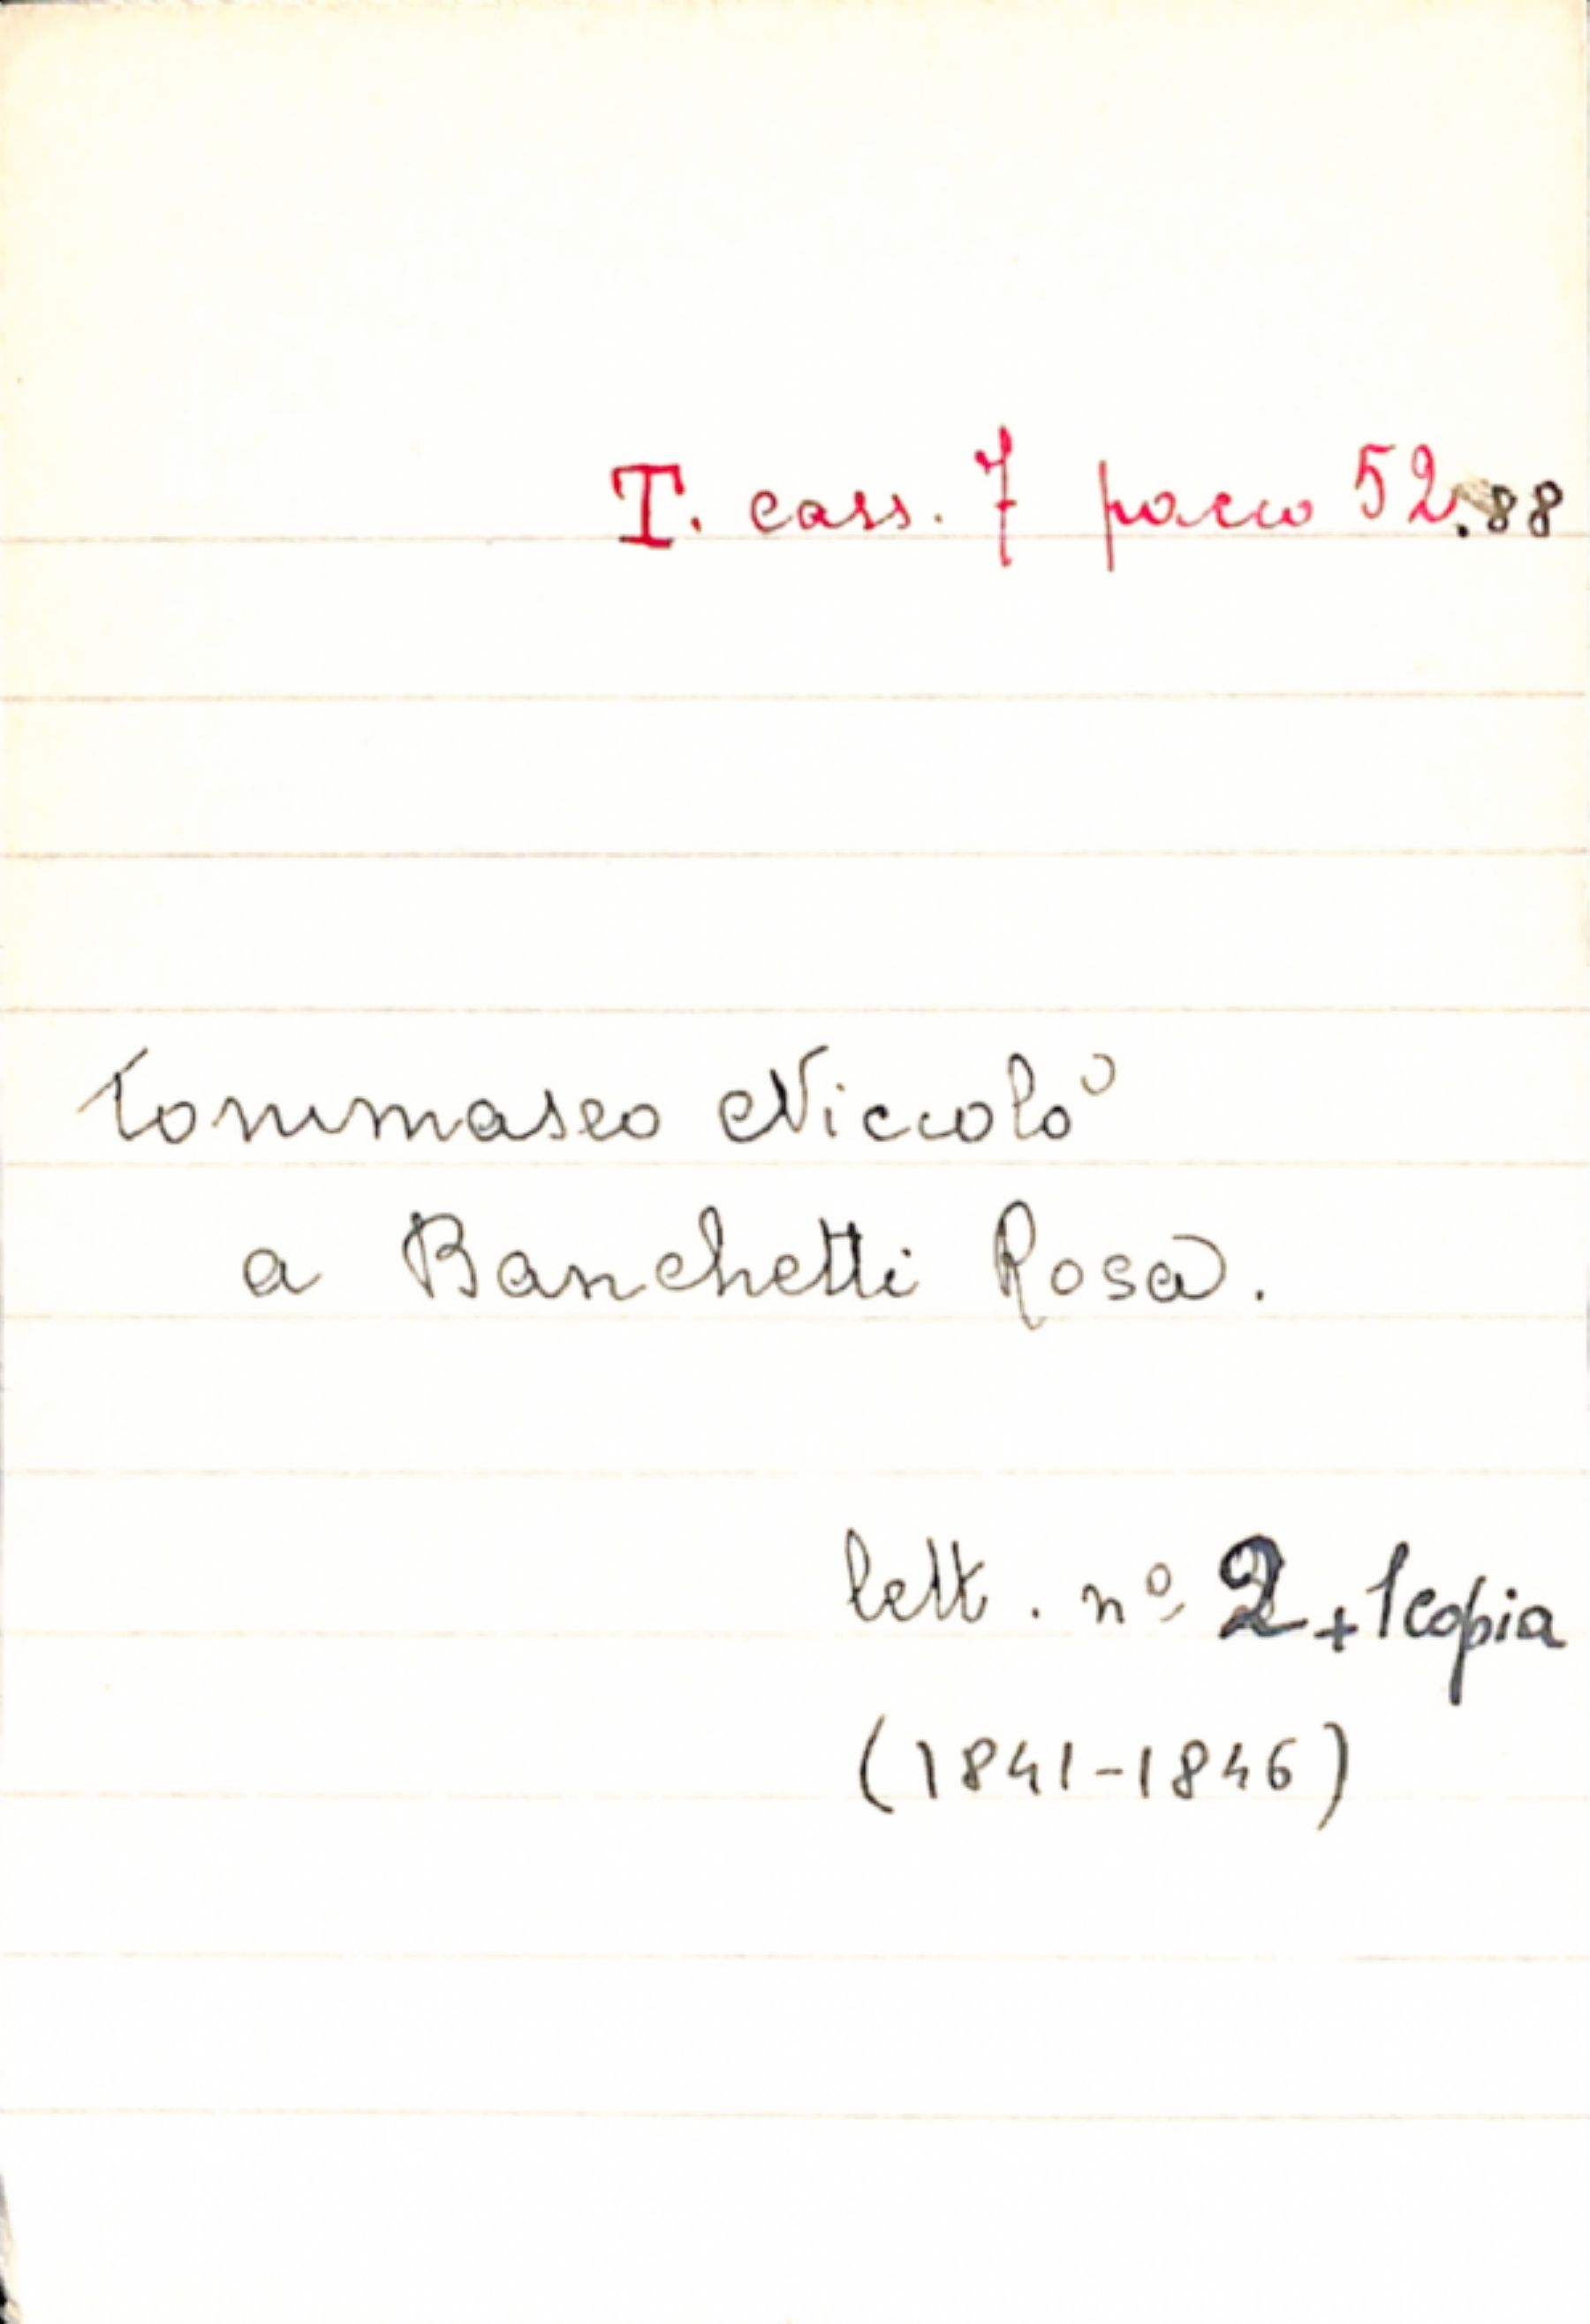 T. cass. 7 pacco 52.88
Tommaseo Niccolò
a Banchetti Rosa.
lett. nº 2 + 1 copia
(1841-1846)